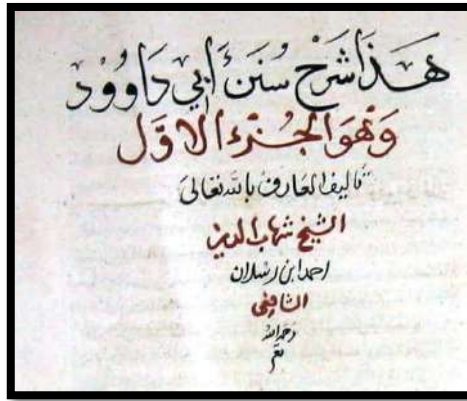 هَذَا شَرْح سُنَن أَبِي دَاوُود
وَهُوَ الجُزْءُ الاوَّل
تاليف العارف بالله تعالى
الشيخ شهاب الدين
احمد ابن رسلان
الشافعي
رحمه الله